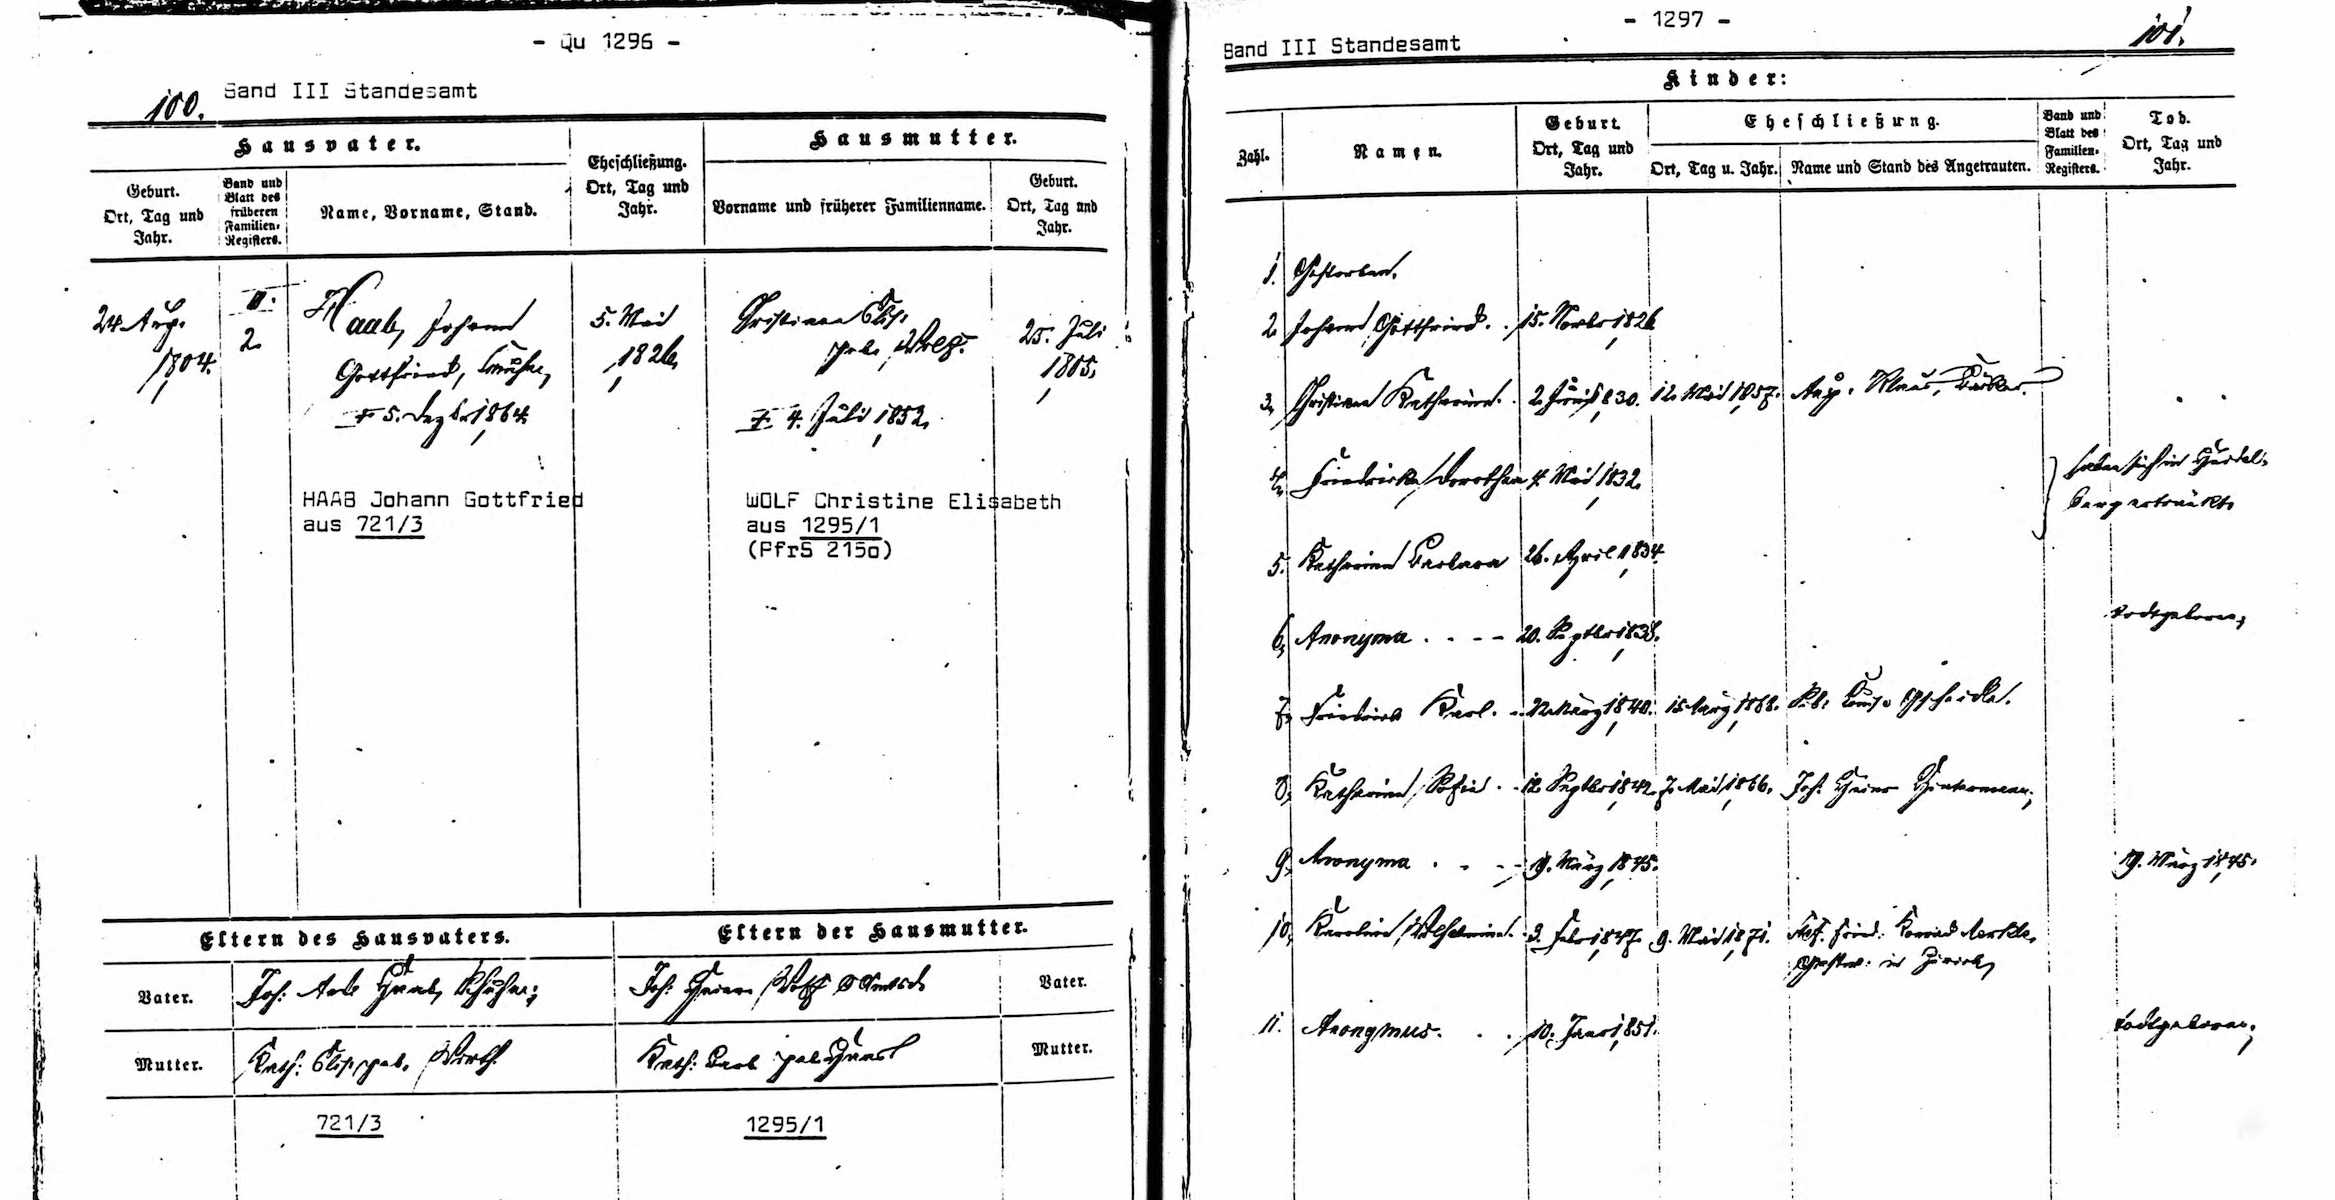 - Qu 1296 -
Band III Standesamt
100.
Hausvater.
Hausmutter.
Geburt.
Ort, Tag und
Jahr.
Band und
Blatt des
früheren
Familien-
Registers.
Name, Vorname, Stand.
Eheschließung.
Ort, Tag und
Jahr.
Vorname und früherer Familienname.
Geburt.
Ort, Tag und
Jahr.
24 Aug.
1804.
II.
2.
Haab, Johann
Gottfried,
† 5. Dezbr 1864.
5. Mai
1826.
Christiana Elis.
geb. Wolf.
† 4. Juli 1852.
25. Juli
1805.
HAAB Johann Gottfried
aus 721/3
WOLF Christine Elisabeth
aus 1295/1
(PfrS 215a)
Eltern des Hausvaters.
Eltern der Hausmutter.
Vater.
Joh. Haab, Schuhm.
Joh. Wolf
Vater.
Mutter.
Kath. Elis. geb.
Kath. Barb geb.
Mutter.
721/3
1295/1
- 1297 -
101.
Band III Standesamt
Kinder:
Zahl.
Namen.
Geburt.
Ort, Tag und
Jahr.
Eheschließung.
Ort, Tag u. Jahr.
Name und Stand des Angetrauten.
Band und
Blatt des
Familien-
Registers.
Tod.
Ort, Tag und
Jahr.
1. Gestorben.
2. Johann Gottfried. 15. Novbr 1826
3. Christiana Katharina. 2. Juni 1830. 12. Mai 1857. Aug.
4. Friedrike Dorothea 4. Mai 1832.
haben sich in Heidel-
berg ertränkt.
5. Katharina Barbara 26. April 1834.
6. Anonyma 20. Septbr 1838. todtgeboren;
7. Friedrich Karl. März 1840. 15 März 1868. Luise
8. Katharina Sofie 12. Septbr 1842. 7. Mai 1866. Joh.
9. Anonyma 19. März 1845. 19. März 1845.
10. Karoline Wilhelmine. 3. Febr 1847. 9. Mai 1871. Fried. Konrad
in Zürich
11. Anonymus. 10. Janr 1851. todtgeboren;